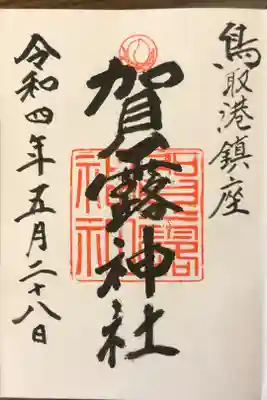 鳥取港鎮座
賀露神社
賀露神社
令和四年五月二十八日